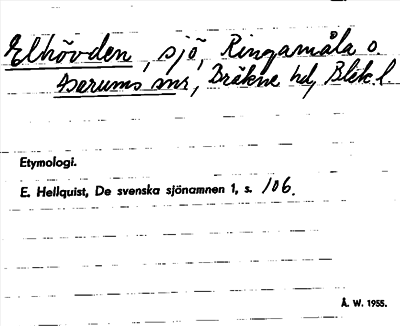 Elhövden, sjö, Ringamåla o.
Asarums snr, Bräkne hd, Blek. l.
Etymologi.
E. Hellquist, De svenska sjönamnen 1, s. 106.
Å. W. 1955.